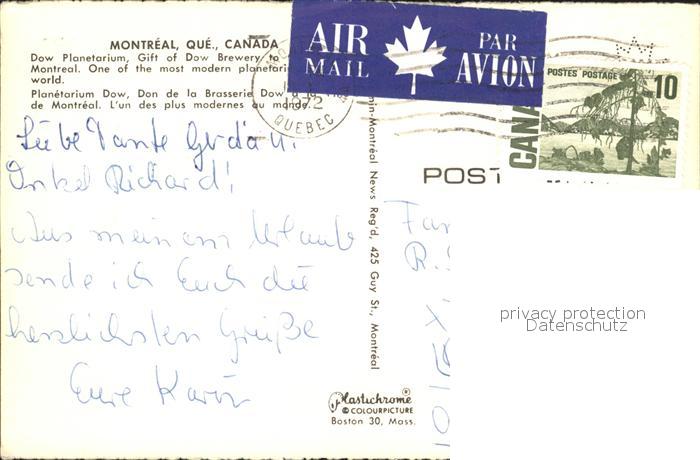 MONTRÉAL, QUÉ., CANADA
Dow Planetarium, Gift of Dow Brewery to
Montreal. One of the most modern planetari
world.
Planétarium Dow, Don de la Brasserie Dow à la
de Montréal. L'un des plus modernes au monde.
AIR MAIL
PAR AVION
QUEBEC
POSTES POSTAGE
10
CANA
POST
Liebe Tante Gerda u.
Onkel Richard!
Aus meinem Urlaube
sende ich Euch die
herzlichsten Grüße
Eure Karin
min-Montréal News Reg'd, 425 Guy St., Montréal
Fam
R.
privacy protection
Datenschutz
Plastichrome®
© COLOURPICTURE
Boston 30, Mass.